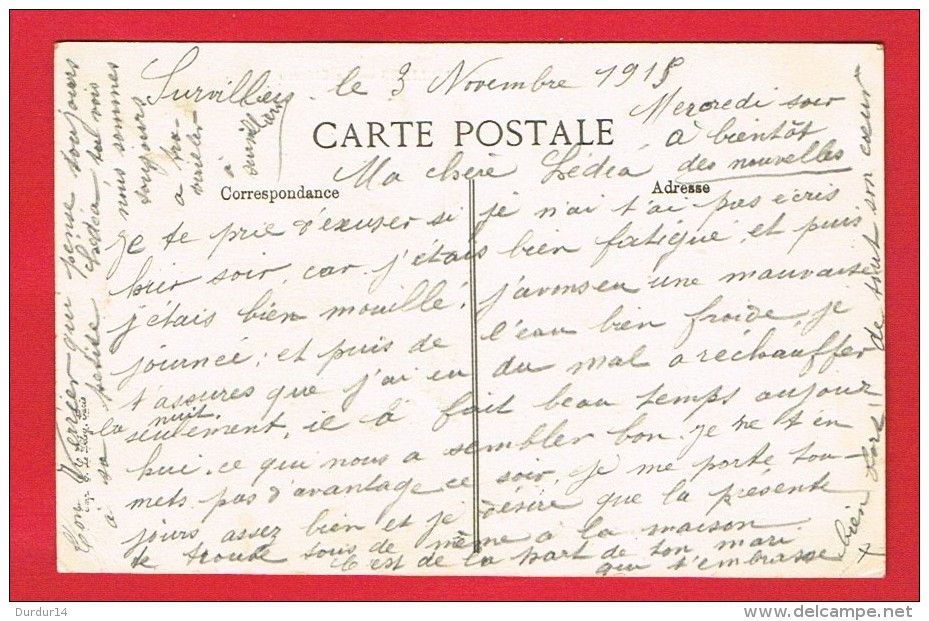 Survilliers, le 3 Novembre 1915
Mercredi soir
CARTE POSTALE
à bientôt
des nouvelles
Ma chère Lédéa
Correspondance
Adresse
Je te prie d'exuser si je n'ai t'ai pas écris
hier soir, car j'étais bien fatigué, et puis
j'étais bien mouillé, j'avons eu une mauvaise
journée; et puis de l'eau bien froide, je
t'assures que j'ai eu du mal a réchauffer
la nuit.
seulement, il à fait beau temps aujour
hui. ce qui nous a sembler bon. Je ne t'en
mets pas d'avantage ce soir, je me porte tou-
jours assez bien et je désire que la présente
te trouve tous de même à la maison
C'est de la part de ton mari
qui t'embrasse
bien fors de tout son cœur
Ton qui pense toujours
a sa petite Lédéa tu vois
nous sommes
toujours
a tra-
vailler
à
Survilliers
Durdur14
www.delcampe.net